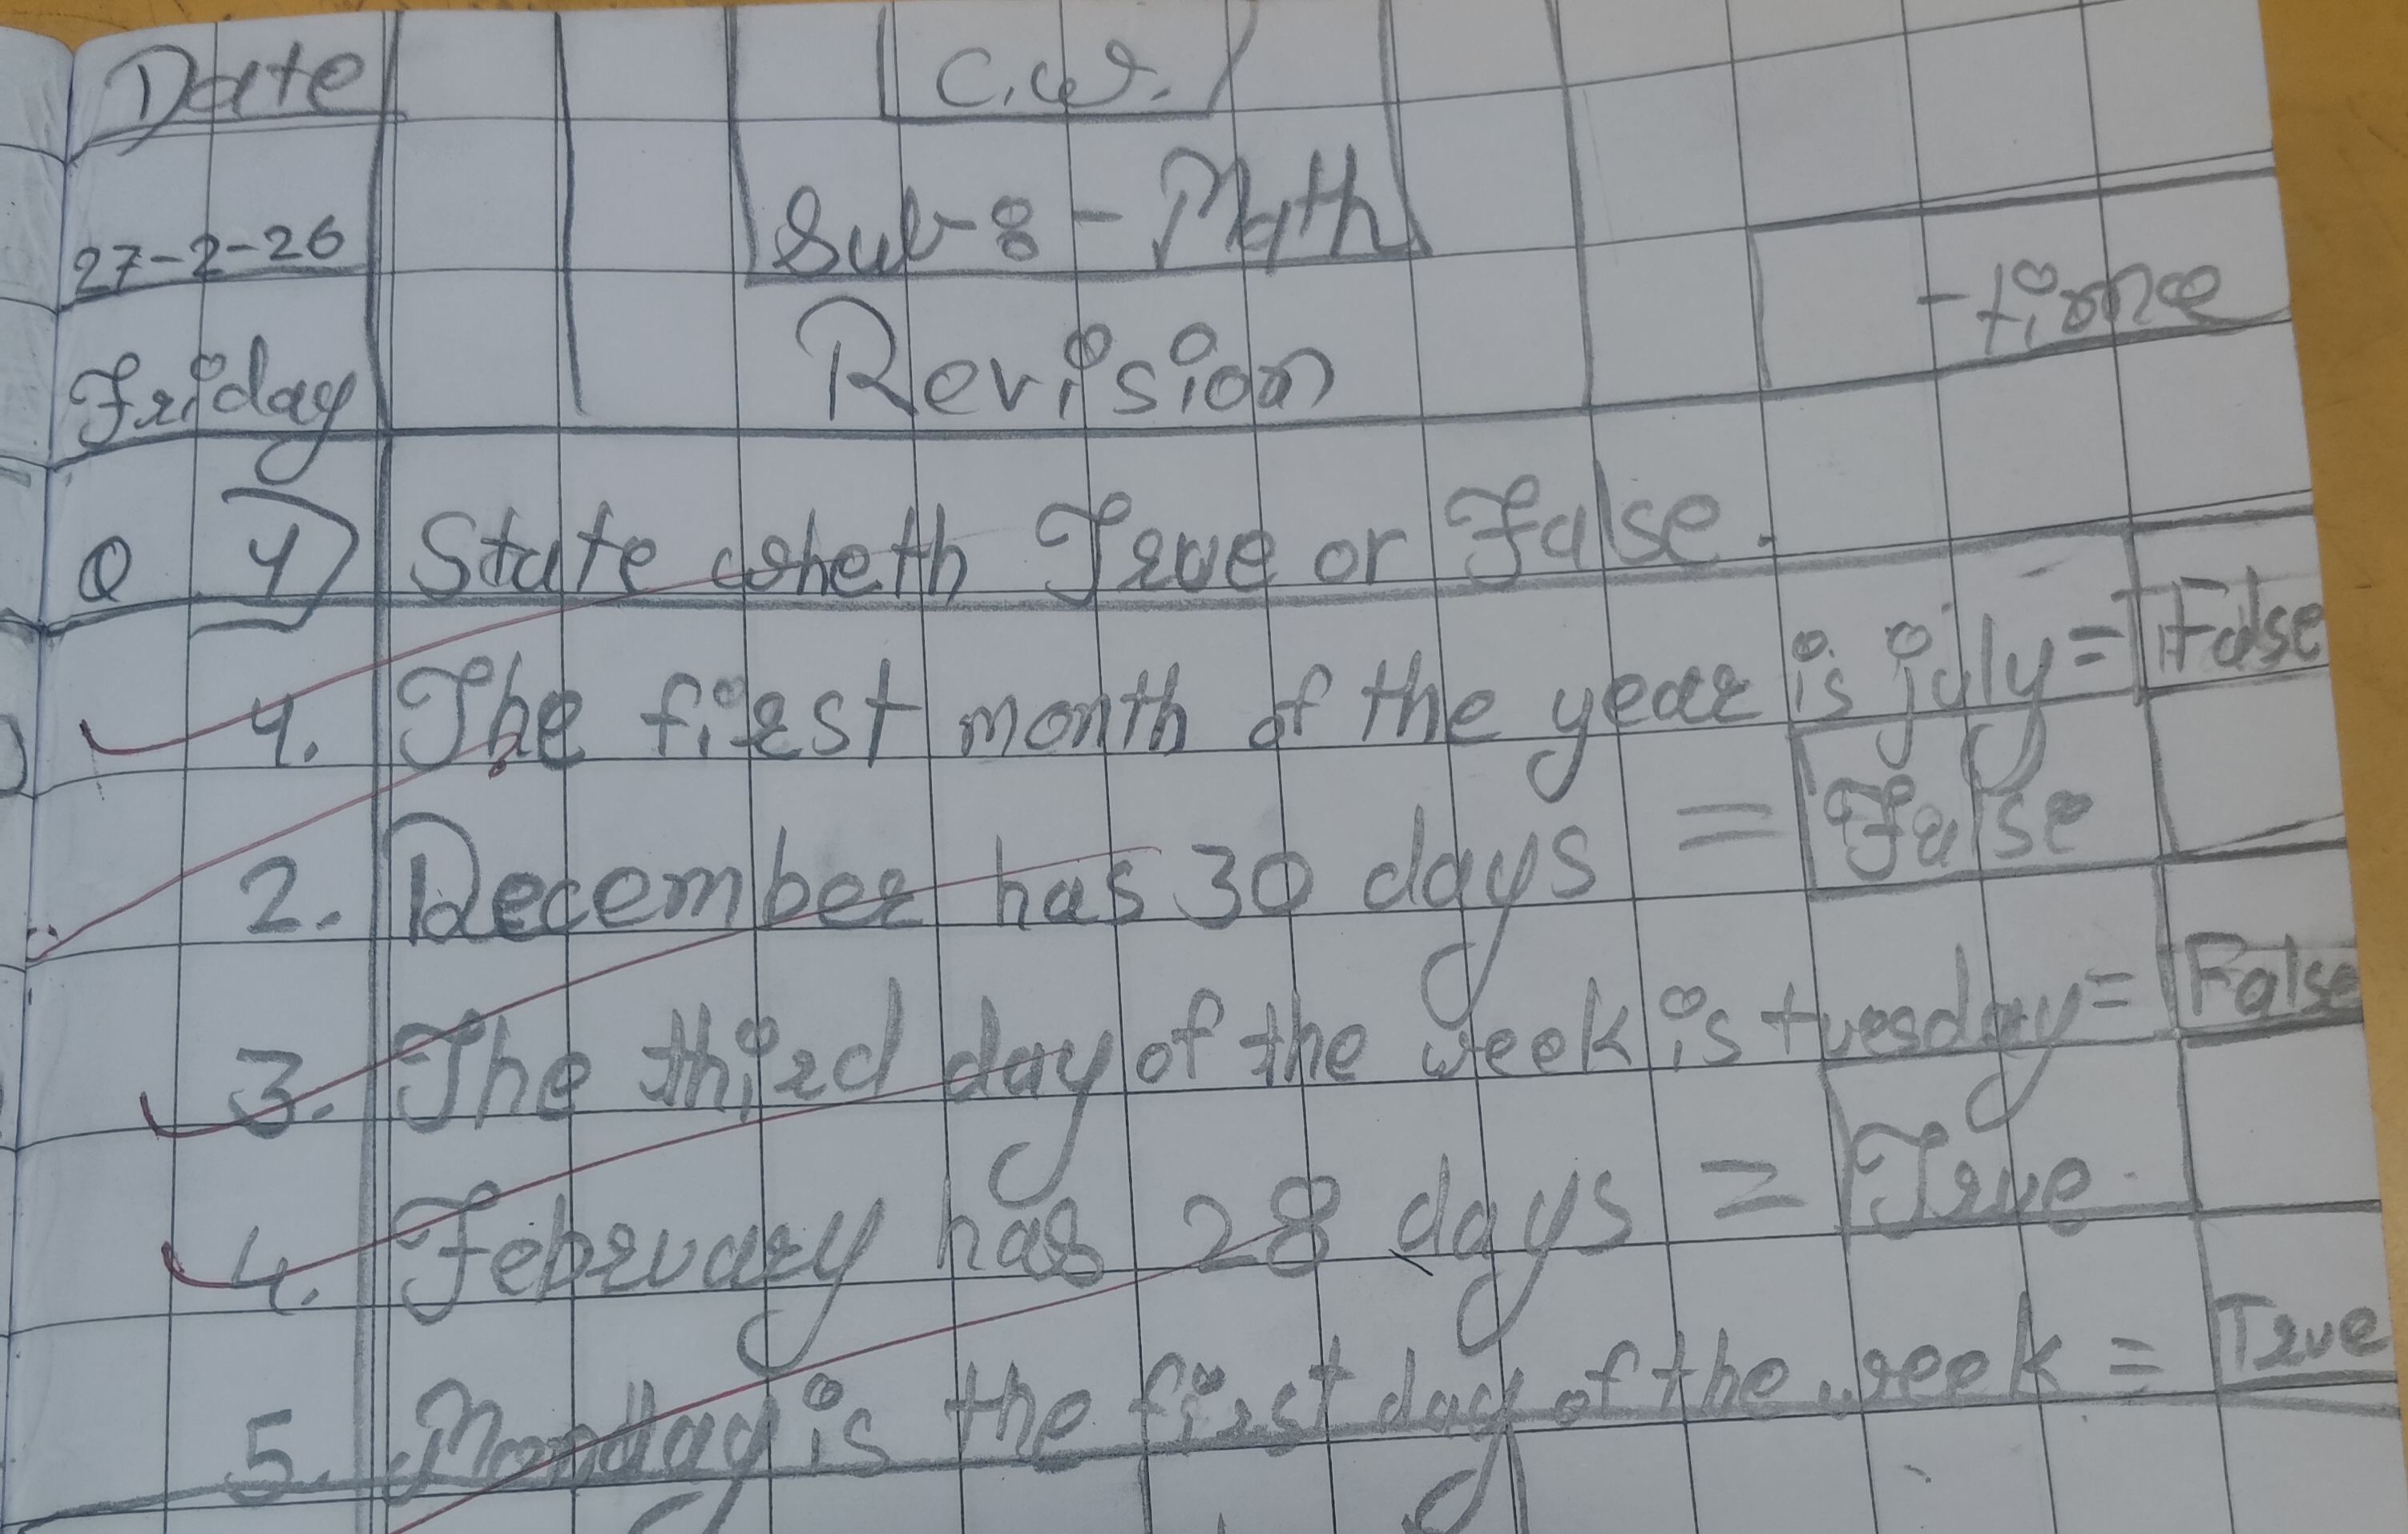 Date
C.W.
27-2-26
Sub-8 - Math
Friday
Revision
- time
Q 1) State wheth True or False.
1. The first month of the year is july = False
2. December has 30 days = False
3. The third day of the week is tuesday = False
4. February has 28 days = True
5. Monday is the first day of the week = True